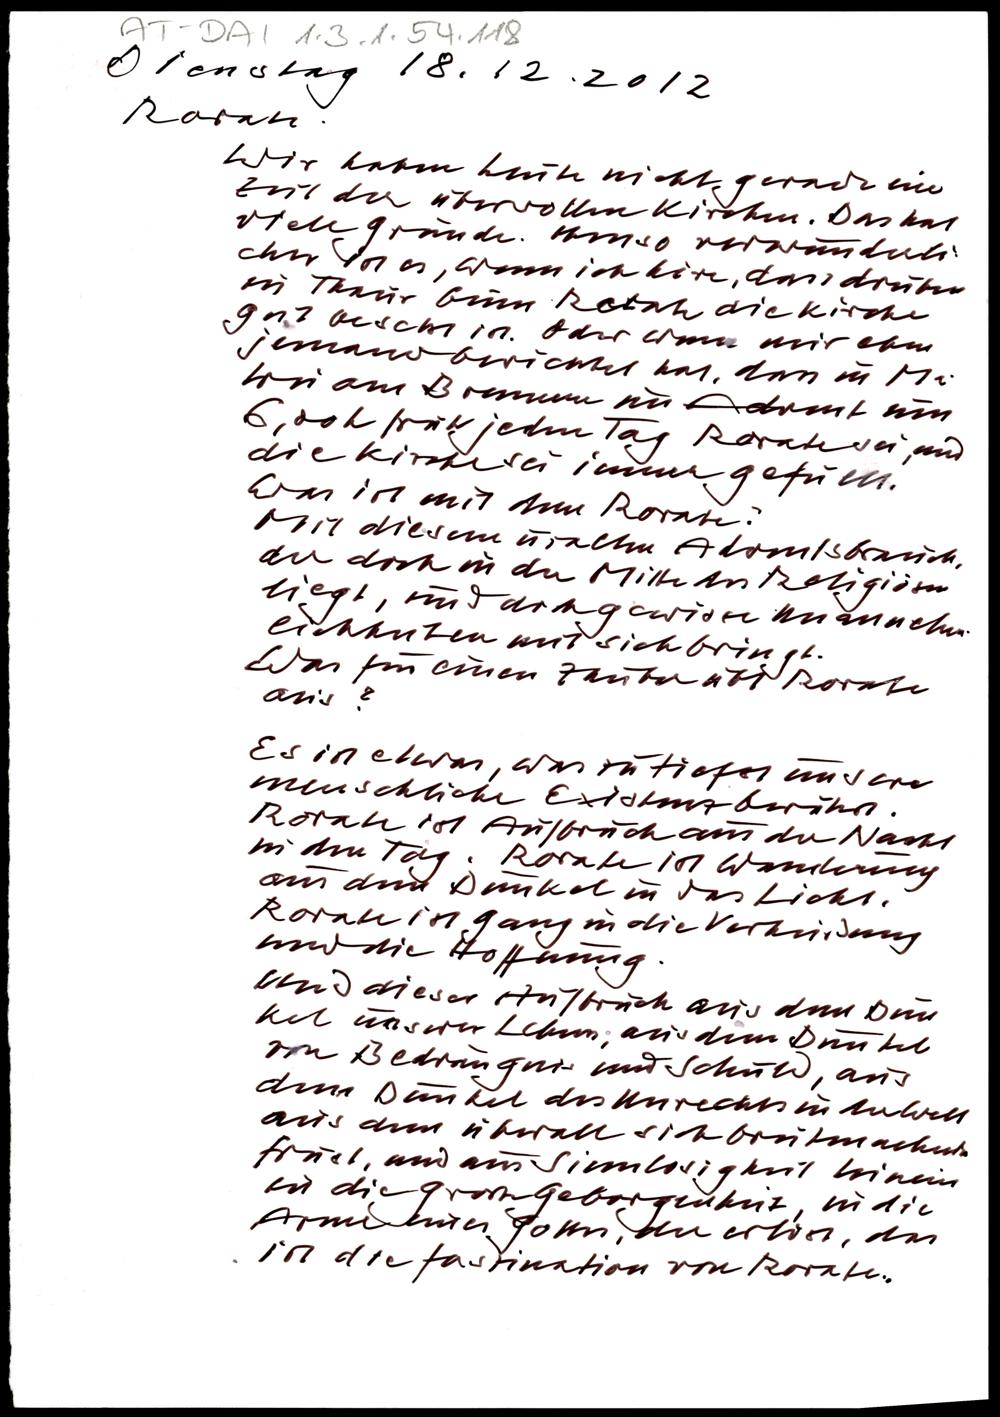 AT-DAI 1.3.1.54.118
Dienstag 18.12.2012
Rorate.
Wir haben heute nicht gerade eine
Zeit der übervollen Kirchen. Das hat
viele Gründe. Umso verwunderli-
cher ist es, wenn ich höre, dass drüben
in Thaur beim Rorate die Kirche
gut besetzt ist. Oder wenn mir eben
jemand berichtet hat, dass in Ma-
trei am Brenner im Advent um
6,00 h früh jeden Tag Rorate sei, und
die Kirche sei immer gefüllt.
Was ist mit dem Rorate?
Mit diesem uralten Adventsbrauch,
der doch in der Mitte des Religiösen
liegt, und doch gewisse Unannehm-
lichkeiten mit sich bringt.
Was für einen Zauber übt Rorate
aus?
Es ist etwas, was zu tiefst unsere
menschliche Existenz berührt.
Rorate ist Aufbruch aus der Nacht
in den Tag. Rorate ist Wanderung
aus dem Dunkel in das Licht.
Rorate ist Gang in die Verheißung
und die Hoffnung.
Und dieser Aufbruch aus dem Dun
kel unserer Leben, aus dem Dunkel
von Bedrängnis und Schuld, aus
dem Dunkel des Unrechts in der Welt
aus dem überall sich breitmachenden
Frust, und aus Sinnlosigkeit hinein
in die große Geborgenheit, in die
Arme eines Gottes, der erlöst, das
ist die Faszination von Rorate.